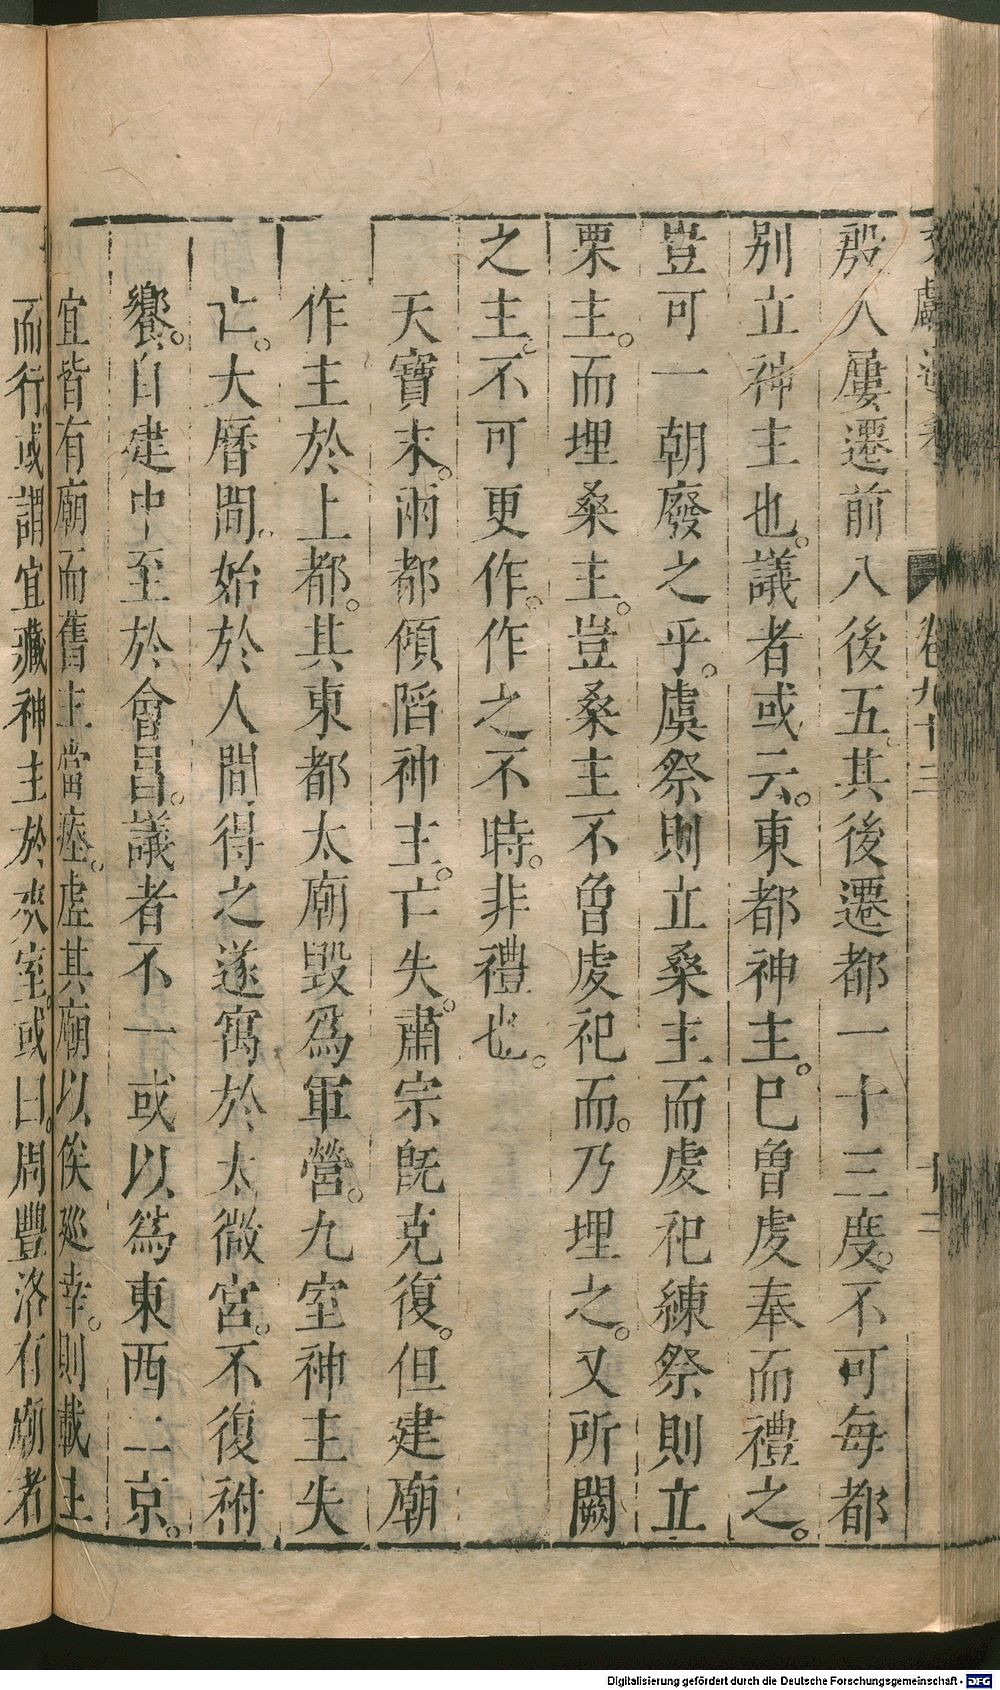 卷九十三
十三
殷人屢遷前八後五其後遷都一十三度。不可每都
別立神主也。議者或云。東都神主。巳曾虔奉而禮之。
豈可一朝廢之乎。虞祭則立桑主而虔祀練祭則立
栗主。而埋桑主。豈桑主不曾虔祀而。乃埋之。又所闕
之主。不可更作。作之不時。非禮也。
天寶末。兩都傾陷神主。亡失。肅宗旣克復。但建廟
作主於上都。其東都太廟毀爲軍營。九室神主失
亡。大曆間。始於人間得之遂寓於太微宮。不復祔
饗。自建中至於會昌。議者不一或以爲東西二京。
宜皆有廟而舊主當瘞。虛其廟以俟廵幸。則載主
而行。或謂宜藏神主於夾室。或曰。周豐洛有廟者
Digitalisierung gefördert durch die Deutsche Forschungsgemeinschaft - DFG